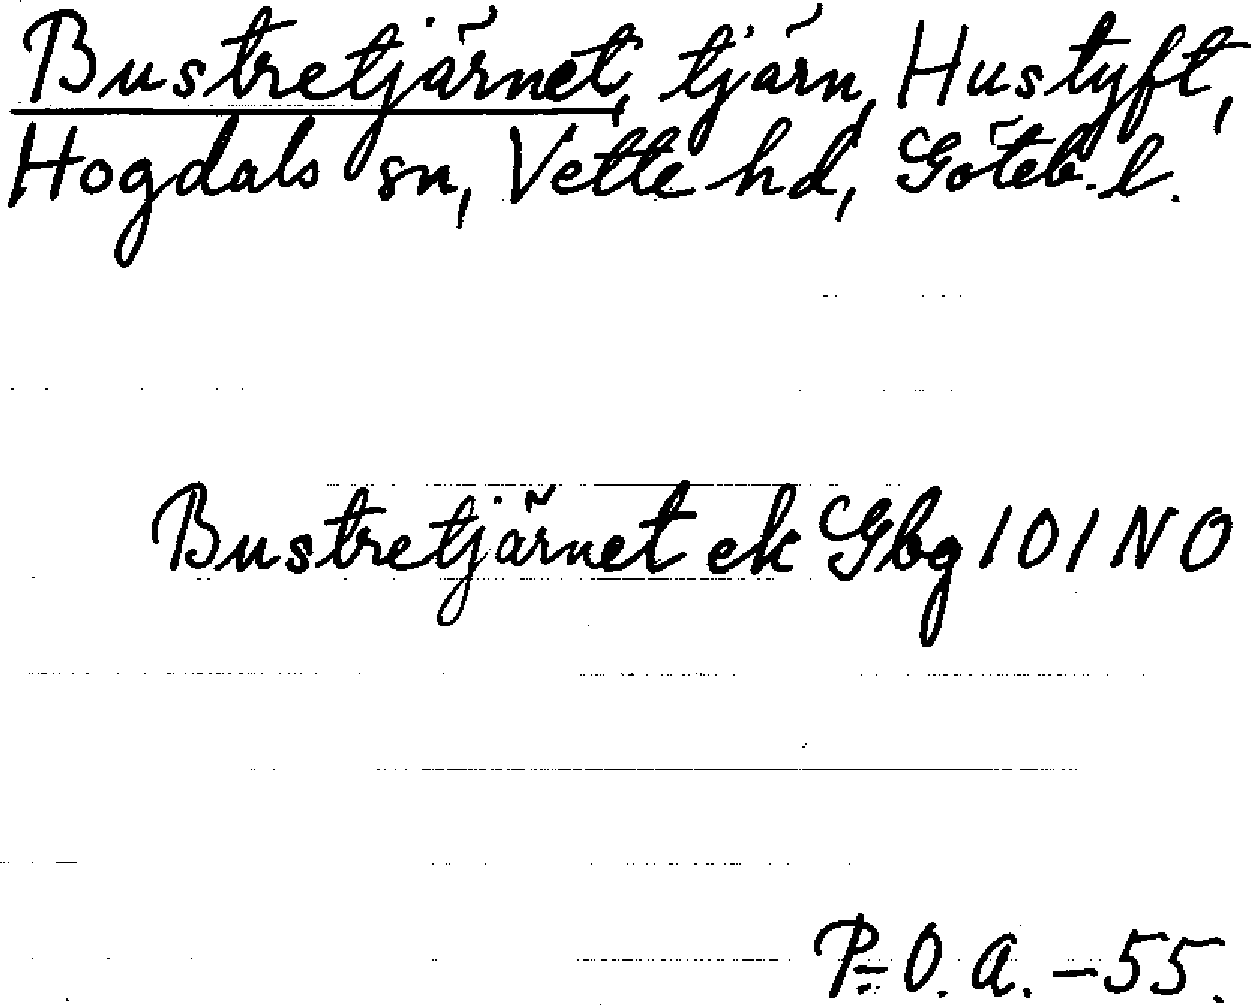 Bustretjärnet, tjärn, Hustyft,
Hogdals sn, Vette hd, Göteb. l.
Bustretjärnet ek Gbg 101 NO
P-O. A. -55.